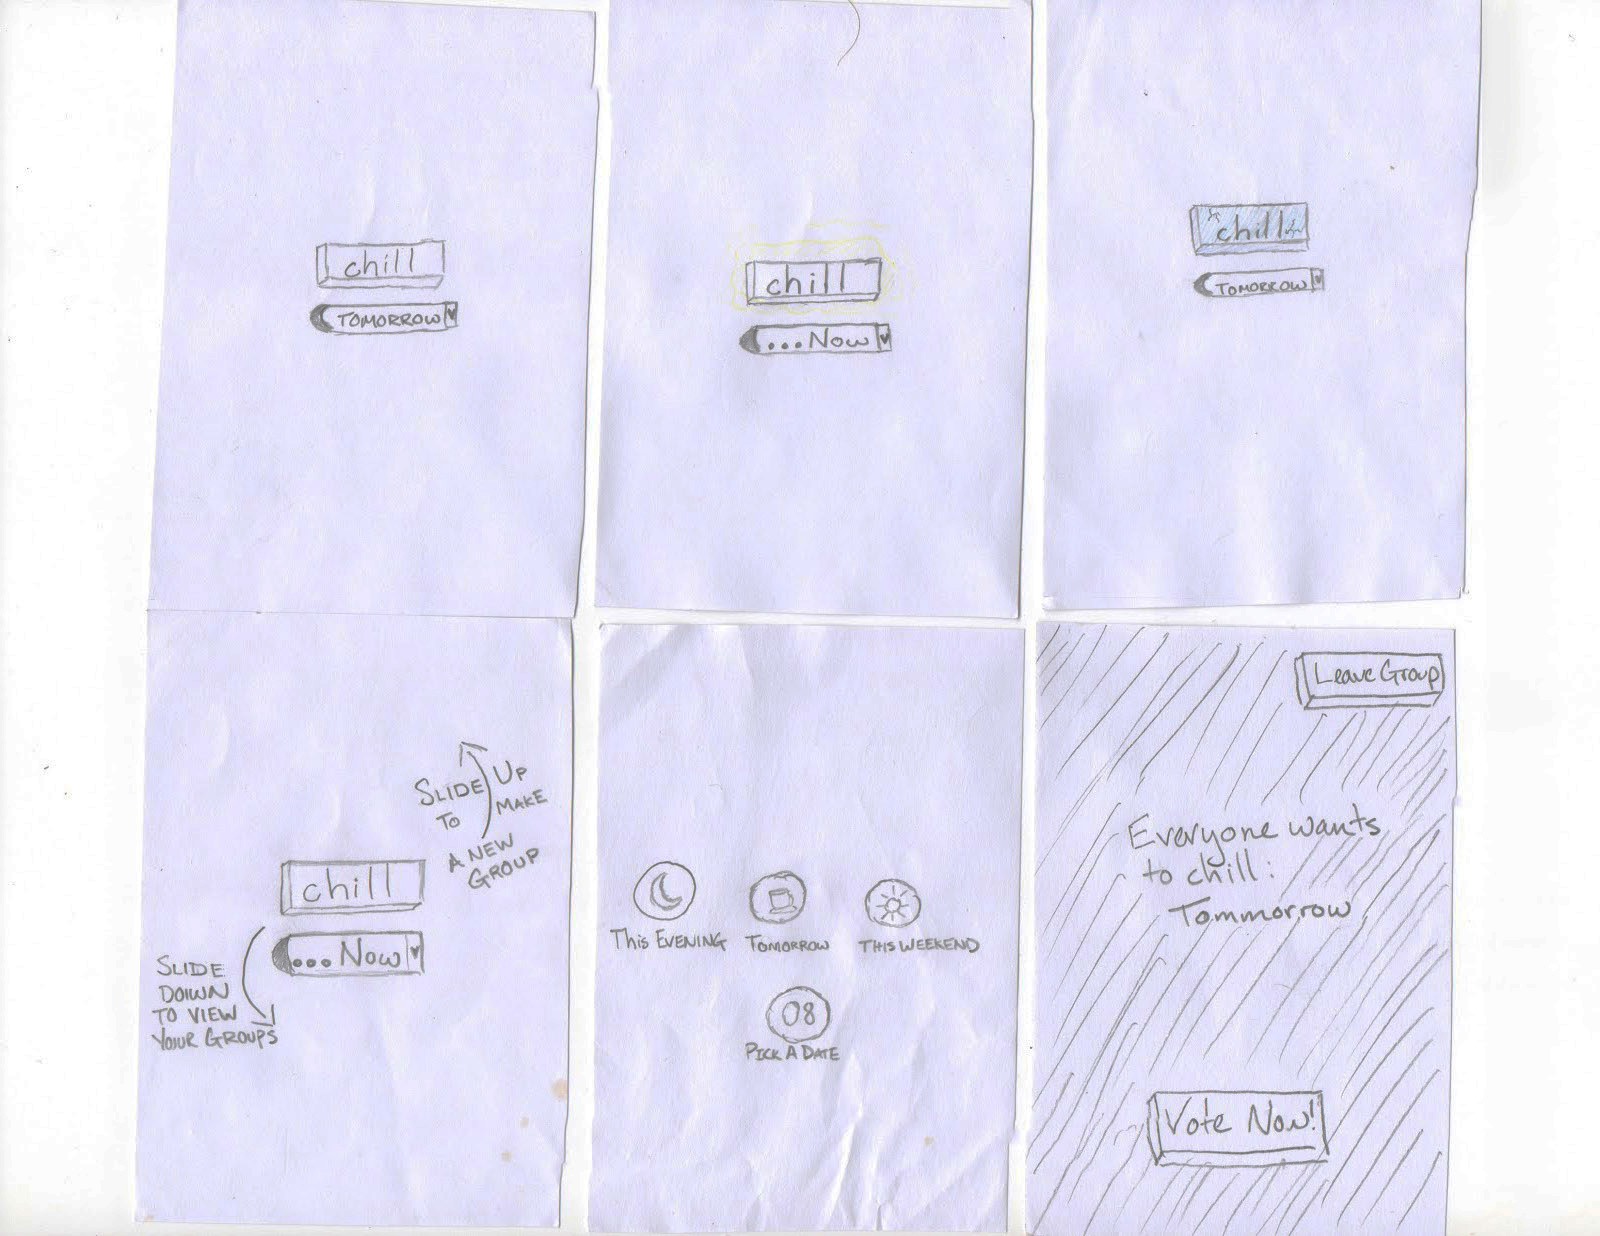 chill
TOMORROW
chill
...Now
chill
TOMORROW
SLIDE UP
TO MAKE
A NEW
GROUP
chill
...Now
SLIDE
DOWN
TO VIEW
YOUR GROUPS
This EVENING
TOMORROW
THIS WEEKEND
08
PICK A DATE
Leave Group
Everyone wants
to chill:
Tommorrow
Vote Now!